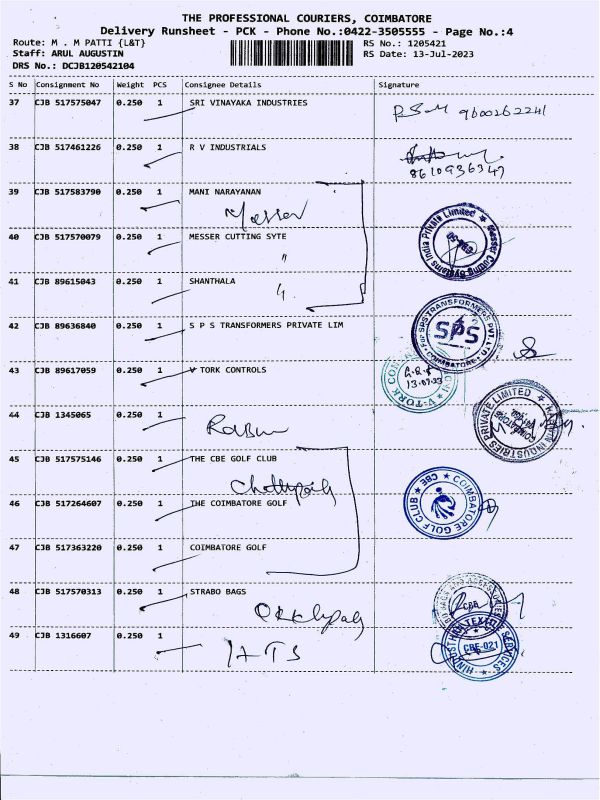 THE PROFESSIONAL COURIERS, COIMBATORE
Delivery Runsheet - PCK - Phone No.:0422-3505555 - Page No.:4
Route: M . M PATTI {L&T} RS No.: 1205421
Staff: ARUL AUGUSTIN RS Date: 13-Jul-2023
DRS No.: DCJB120542104
S No Consignment No Weight PCS Consignee Details Signature
37 CJB 517575047 0.250 1 SRI VINAYAKA INDUSTRIES
9600262241
38 CJB 517461226 0.250 1 R V INDUSTRIALS
8610936347
39 CJB 517583790 0.250 1 MANI NARAYANAN
Messer
Messer Cutting Systems India Private Limited
40 CJB 517570079 0.250 1 MESSER CUTTING SYTE
"
41 CJB 89615043 0.250 1 SHANTHALA
42 CJB 89636840 0.250 1 S P S TRANSFORMERS PRIVATE LIM
For SPS TRANSFORMERS PVT LTD
SPS
COIMBATORE
43 CJB 89617059 0.250 1 V TORK CONTROLS
V-TORK
13.07.23
44 CJB 1345065 0.250 1
INDUSTRIES PRIVATE LIMITED
45 CJB 517575146 0.250 1 THE CBE GOLF CLUB
46 CJB 517264607 0.250 1 THE COIMBATORE GOLF
CBE
COIMBATORE GOLF CLUB
47 CJB 517363220 0.250 1 COIMBATORE GOLF
48 CJB 517570313 0.250 1 STRABO BAGS
49 CJB 1316607 0.250 1
HINDUSTHAN TEXTILE SERVICES
CBE-021